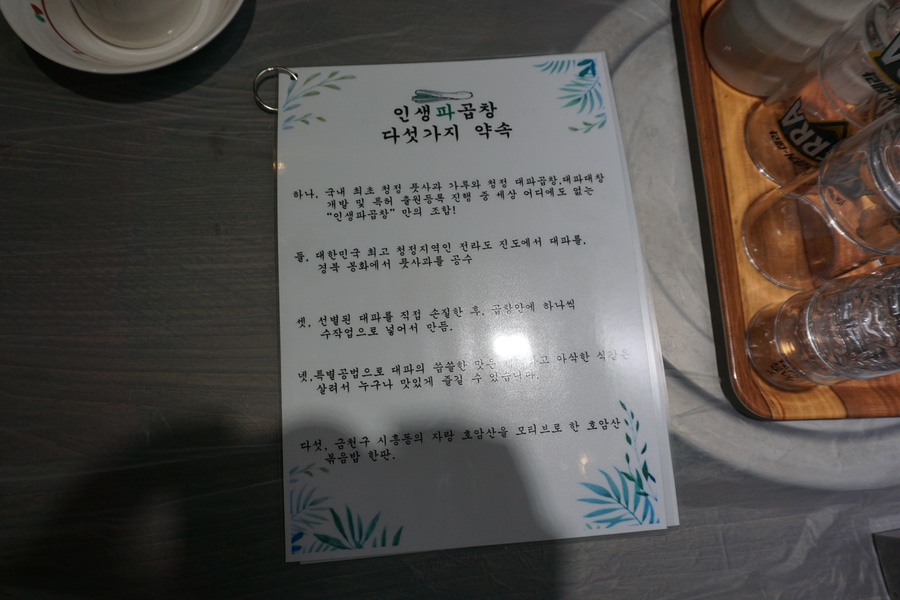 인생파곱창
다섯가지 약속
하나, 국내 최초 청정 풋사과 가루와 청정 대파곱창,대파대창
개발 및 특허 출원등록 진행 중 세상 어디에도 없는
"인생파곱창" 만의 조합!
둘, 대한민국 최고 청정지역인 전라도 진도에서 대파를,
경북 봉화에서 풋사과를 공수
셋, 선별된 대파를 직접 손질한 후, 곱창안에 하나씩
수작업으로 넣어서 만듬.
넷,특별공법으로 대파의 씁쓸한 맛은 아삭한 식감은
살려서 누구나 맛있게 즐길 수 있습니다.
다섯, 금천구 시흥동의 자랑 호암산을 모티브로 한 호암산
볶음밥 한판.